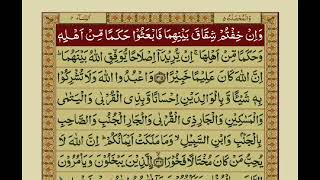 وَاِنْ خِفْتُمْ شِقَاقَ بَيْنِهِمَا فَابْعَثُوْا حَكَمًا مِّنْ اَهْلِهٖ
وَحَكَمًا مِّنْ اَهْلِهَا ۚ اِنْ يُّرِيْدَاۤ اِصْلَاحًا يُّوَفِّقِ اللّٰهُ بَيْنَهُمَا ؕ
اِنَّ اللّٰهَ كَانَ عَلِيْمًا خَبِيْرًا ۝ وَاعْبُدُوا اللّٰهَ وَلَا تُشْرِكُوْا
بِهٖ شَيْـًٔا وَّبِالْوَالِدَيْنِ اِحْسَانًا وَّبِذِى الْقُرْبٰى وَالْيَتٰمٰى
وَالْمَسٰكِيْنِ وَالْجَارِ ذِى الْقُرْبٰى وَالْجَارِ الْجُنُبِ وَالصَّاحِبِ
بِالْجَنْۢبِ وَابْنِ السَّبِيْلِ ۙ وَمَا مَلَكَتْ اَيْمَانُكُمْ ؕ اِنَّ اللّٰهَ لَا
يُحِبُّ مَنْ كَانَ مُخْتَالًا فَخُوْرَا ۝ الَّذِيْنَ يَبْخَلُوْنَ وَيَاْمُرُوْنَ